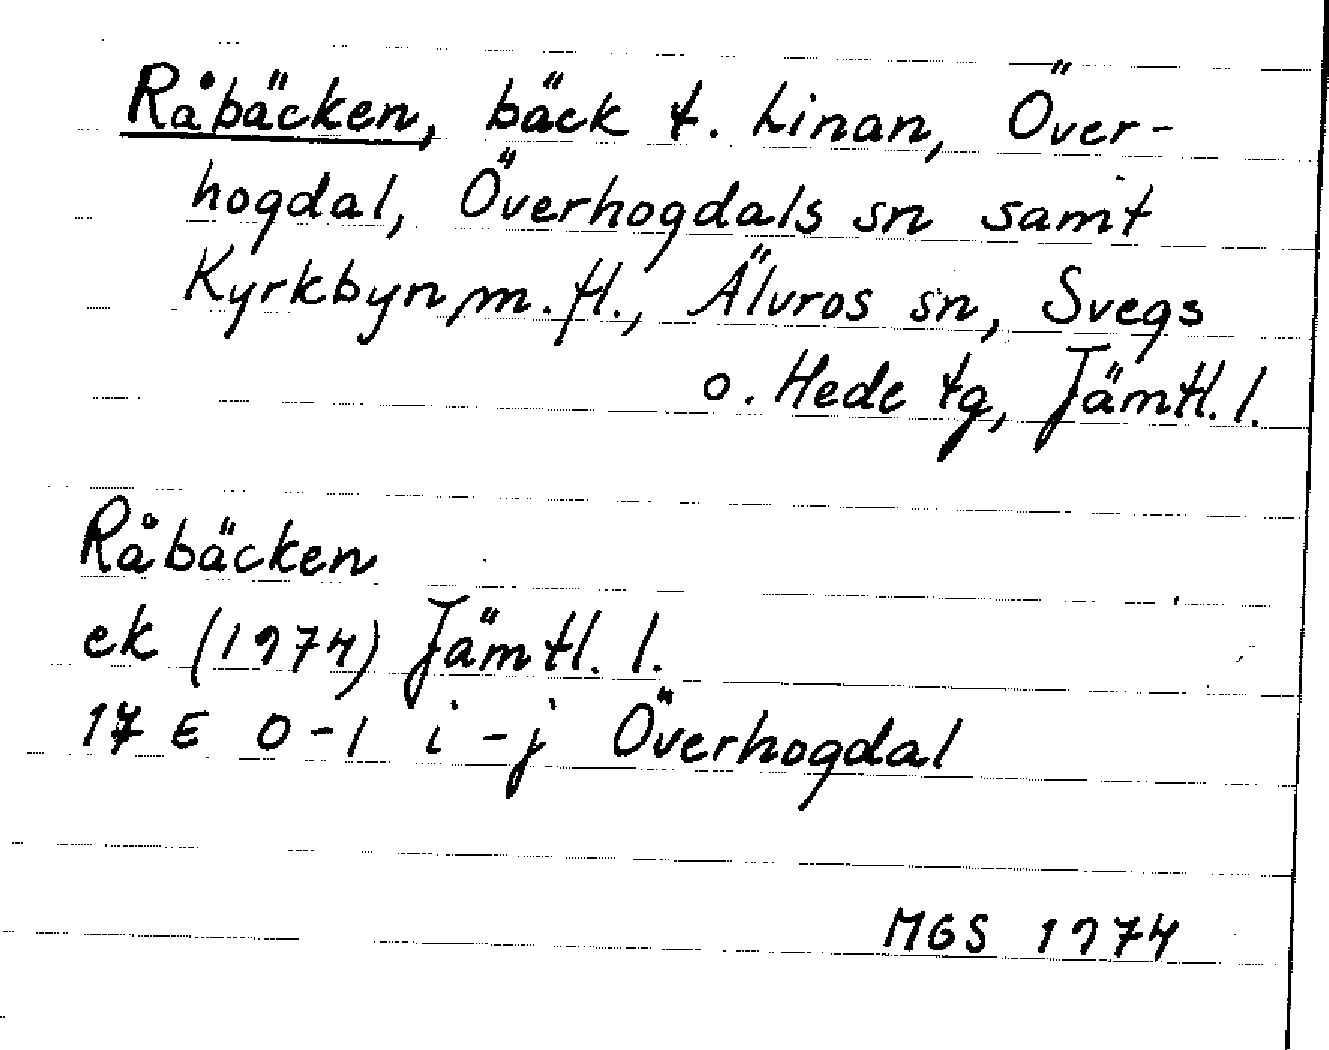 Råbäcken, bäck t. Linan, Över-
hogdal, Överhogdals sn samt
Kyrkbyn m.fl., Älvros sn, Svegs
o. Hede tg, Jämtl. l.
Råbäcken
ek (1974) Jämtl. l.
17 E 0-1 i-j Överhogdal
MGS 1974